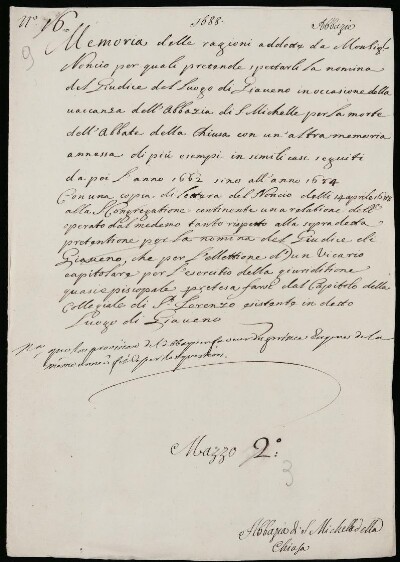 N.º 16
1688
Abbazie
9
Memoria delle ragioni addotte da Monsigr
Noncio per quali pretende spettarli la nomina
del Giudice del Luogo di Giaveno in occasione della
vaccanza dell'Abbazia di S. Michelle per la morte
dell'Abbate della Chiusa con un'altra memoria
annessa di più esempi in simili casi seguiti
da poi l'anno 1662 sino all'anno 1684
Con una copia di lettera del Noncio delli 14 aprile
alla Congregatione continente una relatione dell'
operato dal medemo tanto rispetto alla sopradetta
pretentione per la nomina del Giudice di
Giaveno, che per l'ellettione d'un Vicario
capitolare per l'esercitio della giurisditione
quasi episcopale pretesa farsi dal Capitolo della
Collegiale di St. Lorenzo esistente in detto
Luogo di Giaveno
provision de l'abbaye en faveur du prince Eugene de la
Mazzo 2º:
3
Abbazia di S. Michelle della
Chiusa